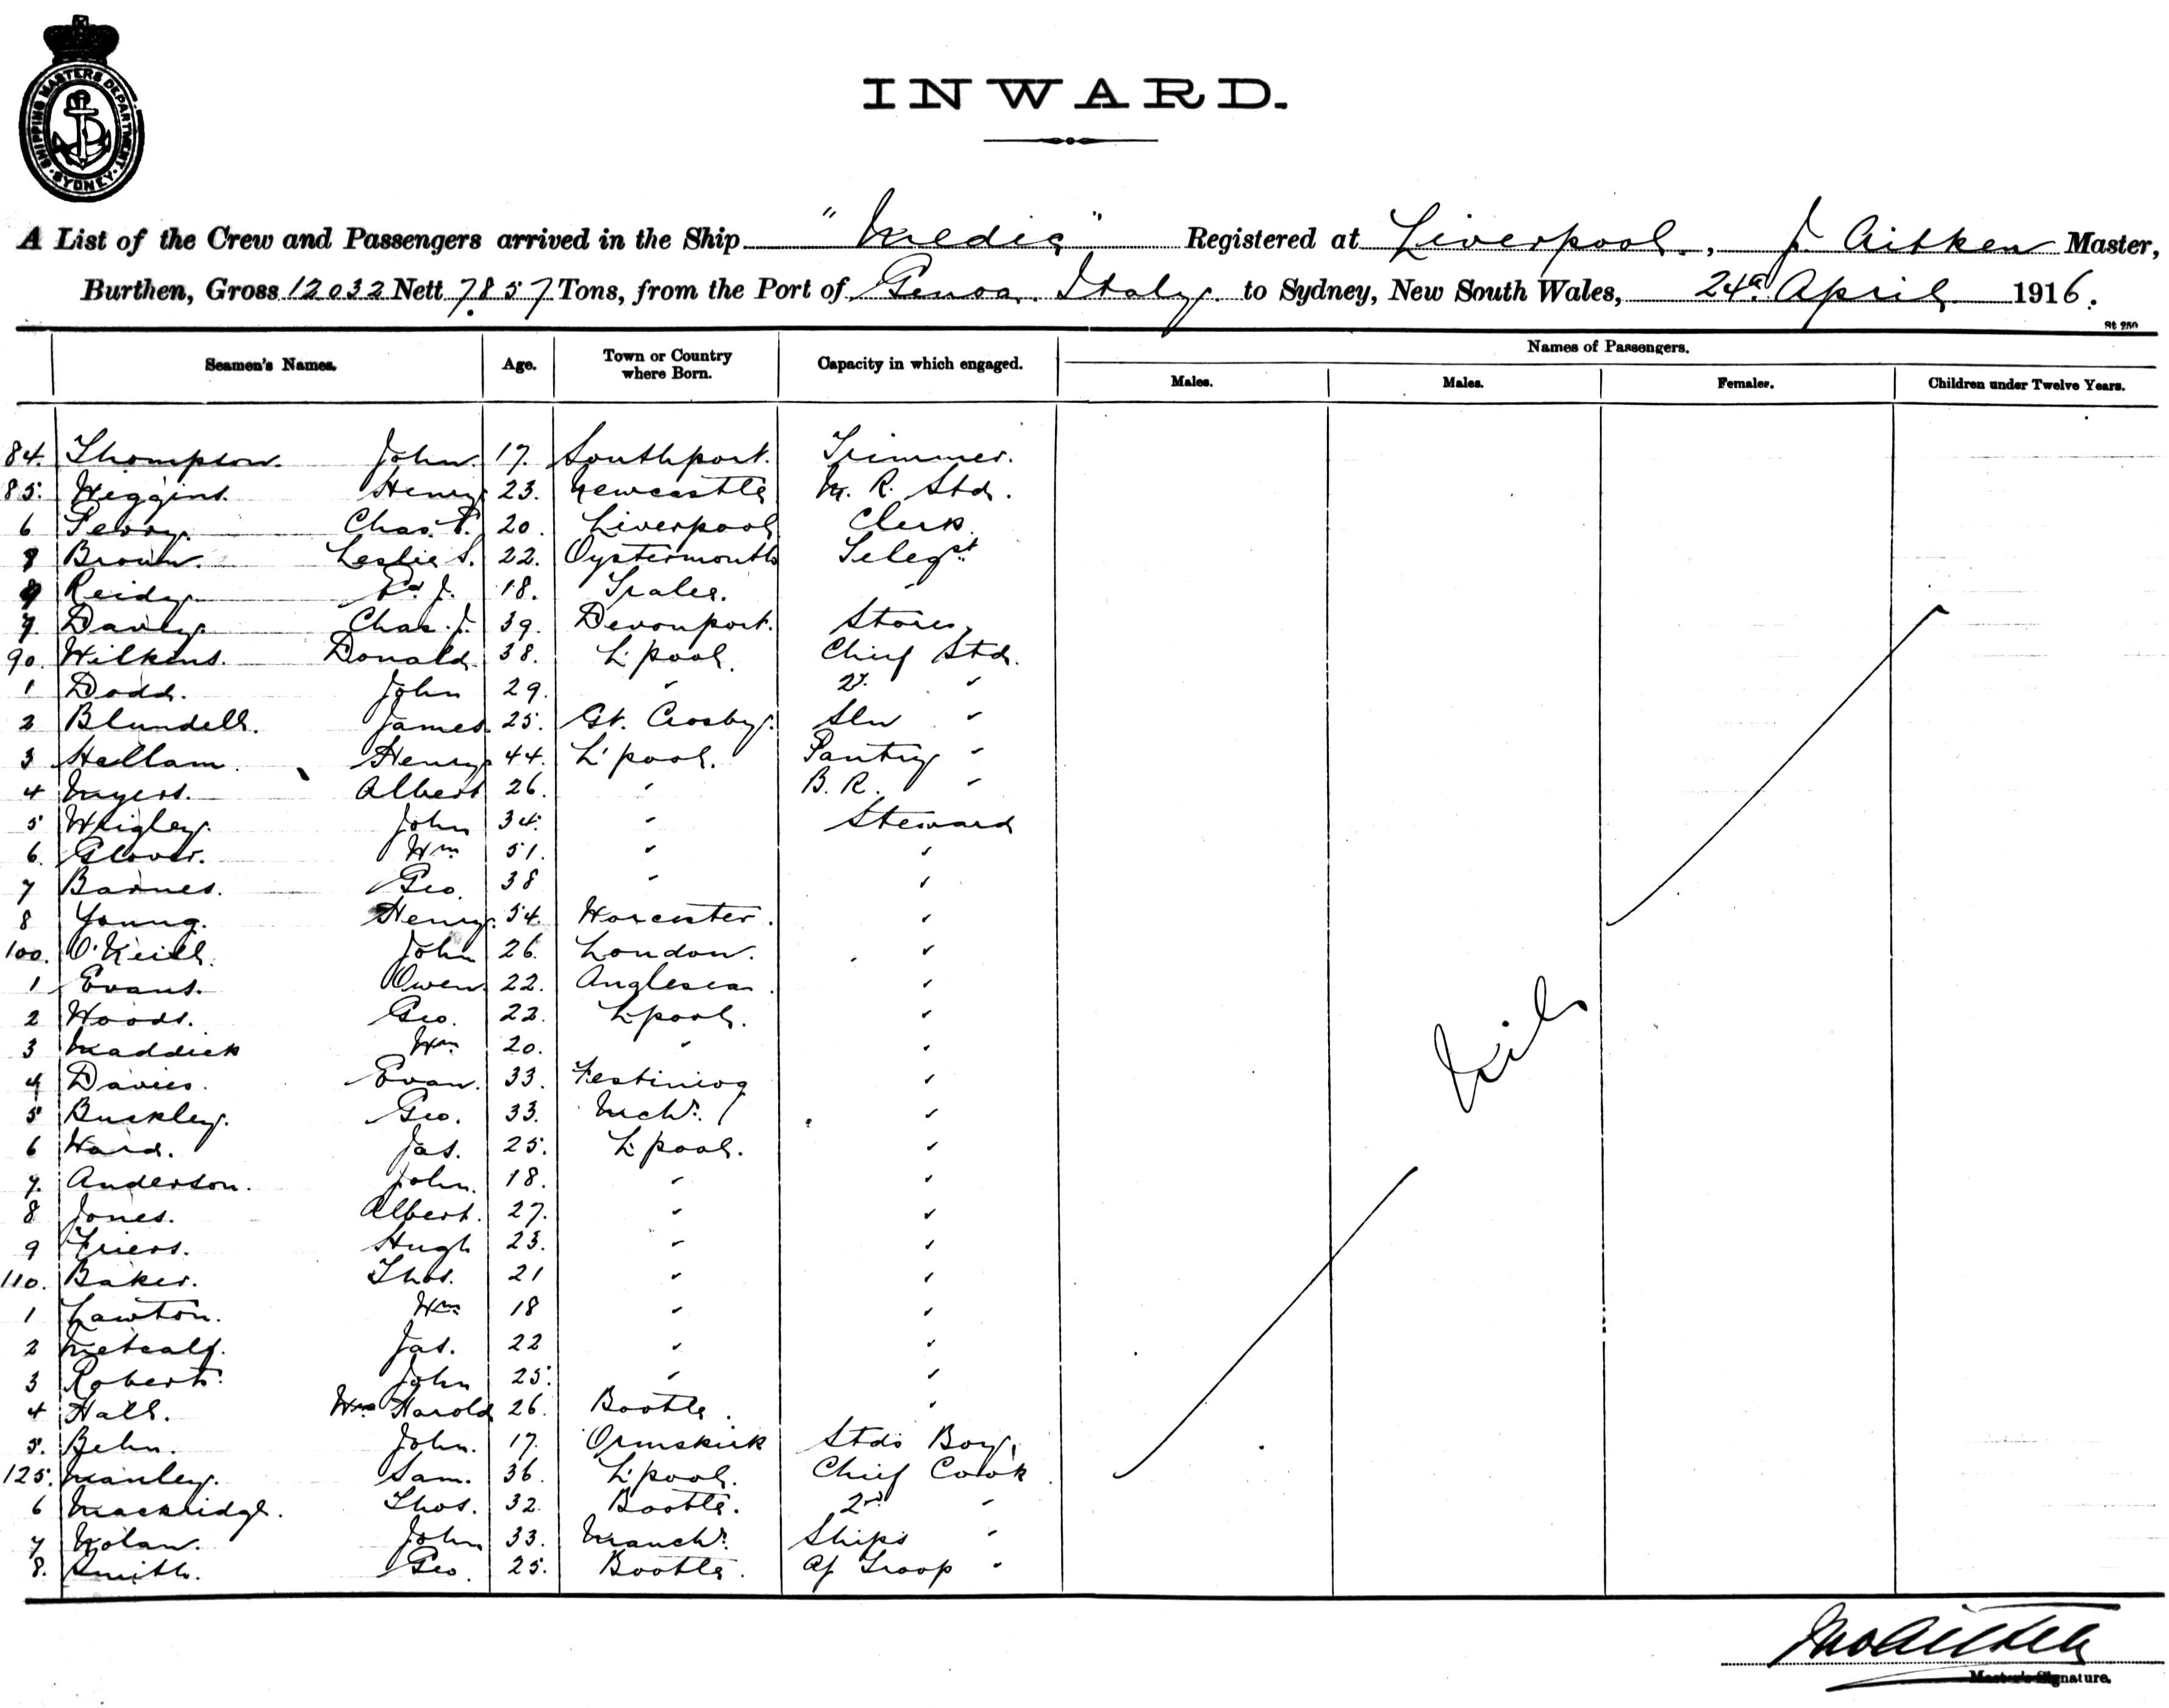 SHIPPING MASTERS DEPARTMENT · SYDNEY ·
INWARD.
A List of the Crew and Passengers arrived in the Ship "Medic" Registered at Liverpool, J Aitken Master,
Burthen, Gross 12032 Nett 7857 Tons, from the Port of Genoa Italy to Sydney, New South Wales, 24th April 1916.
St 250
Seamen's Names. Age. Town or Country where Born. Capacity in which engaged. Names of Passengers.
Males. Males. Females. Children under Twelve Years.
84. Thompson. John. 17. Southport. Trimmer.
85. Weggins. Henry 23. Newcastle M. R. Std.
6 Perry. Chas. 20. Liverpool Clerk.
8 Brown. Leslie S. 22. Oystermouth Telegst
Reidy Ed J. 18. Tralee. "
9. Davly. Chas. J. 39. Devonport. Stores,
90. Wilkins. Donald. 38. L'pool. Chief Std.
1 Dodd. John 29. " 2d. "
2 Blundell. James. 25. Gt. Crosby. Sln "
3 Hallam. Henry 44. L'pool. Pantry "
4 Myers. Albert 26. " B. R. "
5 Wrigley. John 34. " Steward
6. Glover. Wm 51. " "
7 Barnes. Geo. 38 " "
8 Young. Henry. 54. Worcester. "
100. O'Neill. John 26. London. "
1 Evans. Owen 22. Anglesea. "
2 Woods. Geo. 22. Lpool. "
3 Maddick Wm 20. " "
4 Davies. Evan. 33. Festiniog "
5 Buckley. Geo. 33. Mchr. "
6 Ward. Jas. 25. L'pool. "
7. Anderson. John. 18. " "
8 Jones. Albert. 27. " "
9 Friers. Hugh 23. " "
110. Baker. Thos. 21 " "
1 Lawton. Wm 18 " "
2 Metcalf. Jas. 22 " "
3 Roberts. John 25. " "
4 Hall. Wm Harold 26. Bootle. "
5. Behn. John. 17. Ormskirk Stds Boy,
125. Manley. Sam. 36. L'pool. Chief Cook
6 Mackridge. Thos. 32. Bootle. 2nd "
7 Nolan. John 33. Manchr. Ships "
8. Smith. Geo. 25. Bootle. Troop "
Nil
Jno Aitken
Master's Signature.